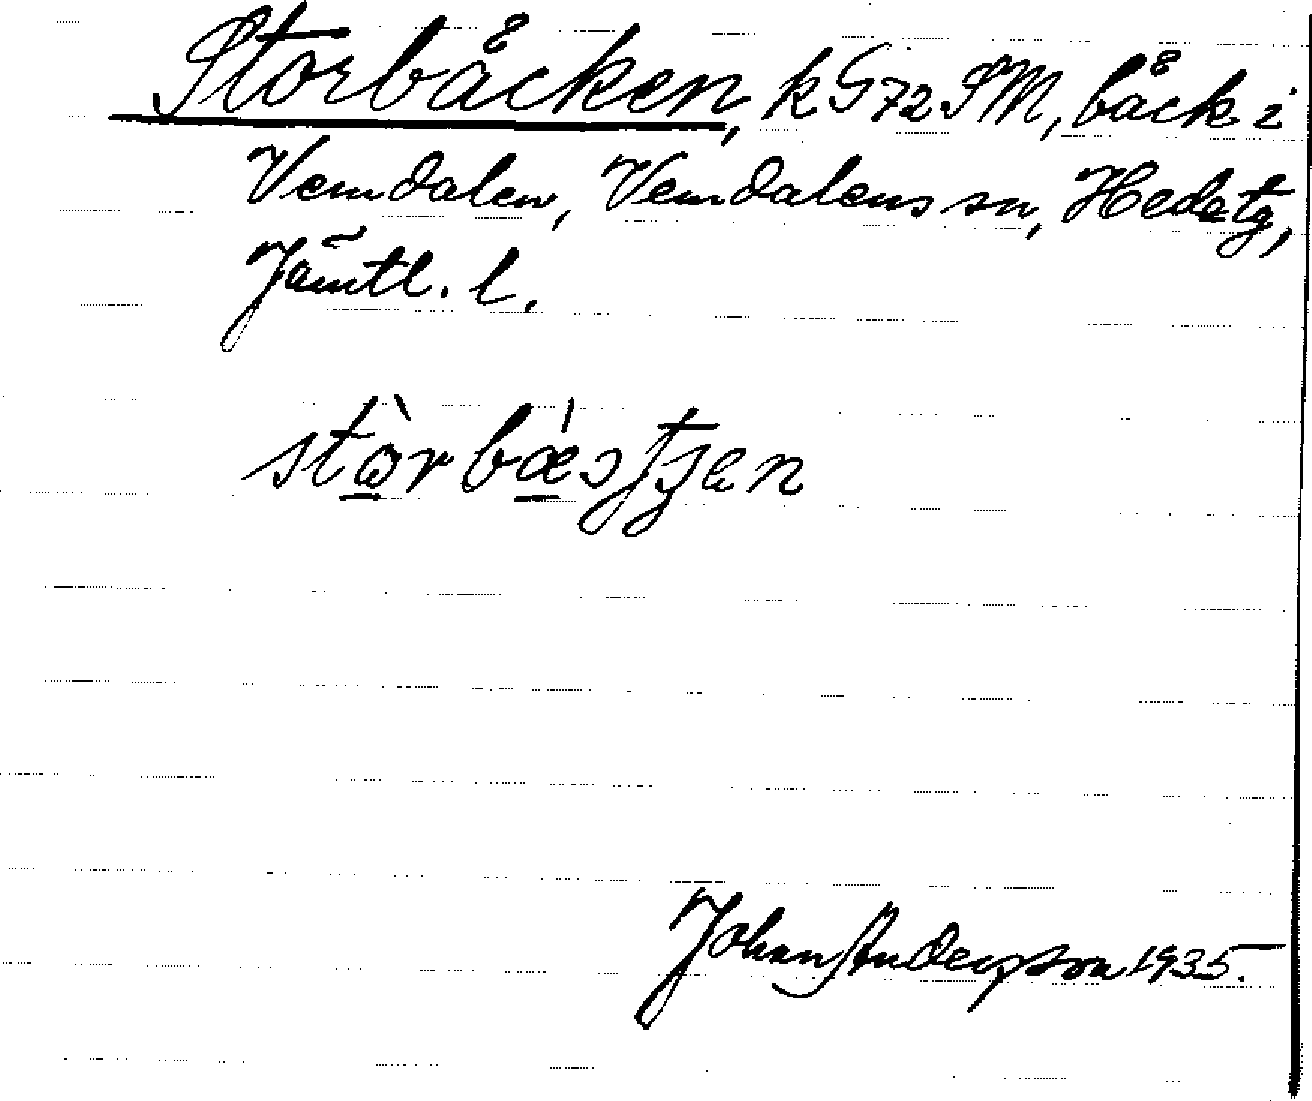 Storbäcken, k G 72 SM, bäck i
Vemdalen, Vemdalens sn, Hedetg,
Jämtl. l.
Johan Andersson 1935.